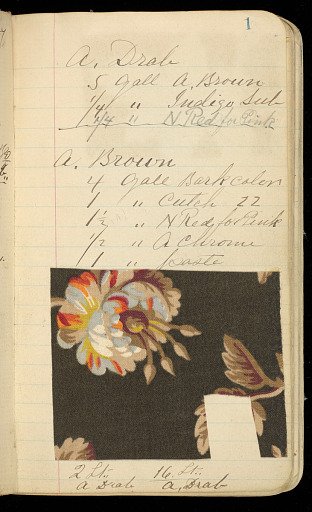 1
A. Drab
5 Gall A. Brown
1/4 " Indigo Sub
1/4 " N Red for Pink
A. Brown
4 Gall Bark color
1 " Cutch 22
1 1/2 " N Red for Pink
1/2 " A Chrome
1 " paste
2 Lt. 16 Lt.
A Drab A, Drab